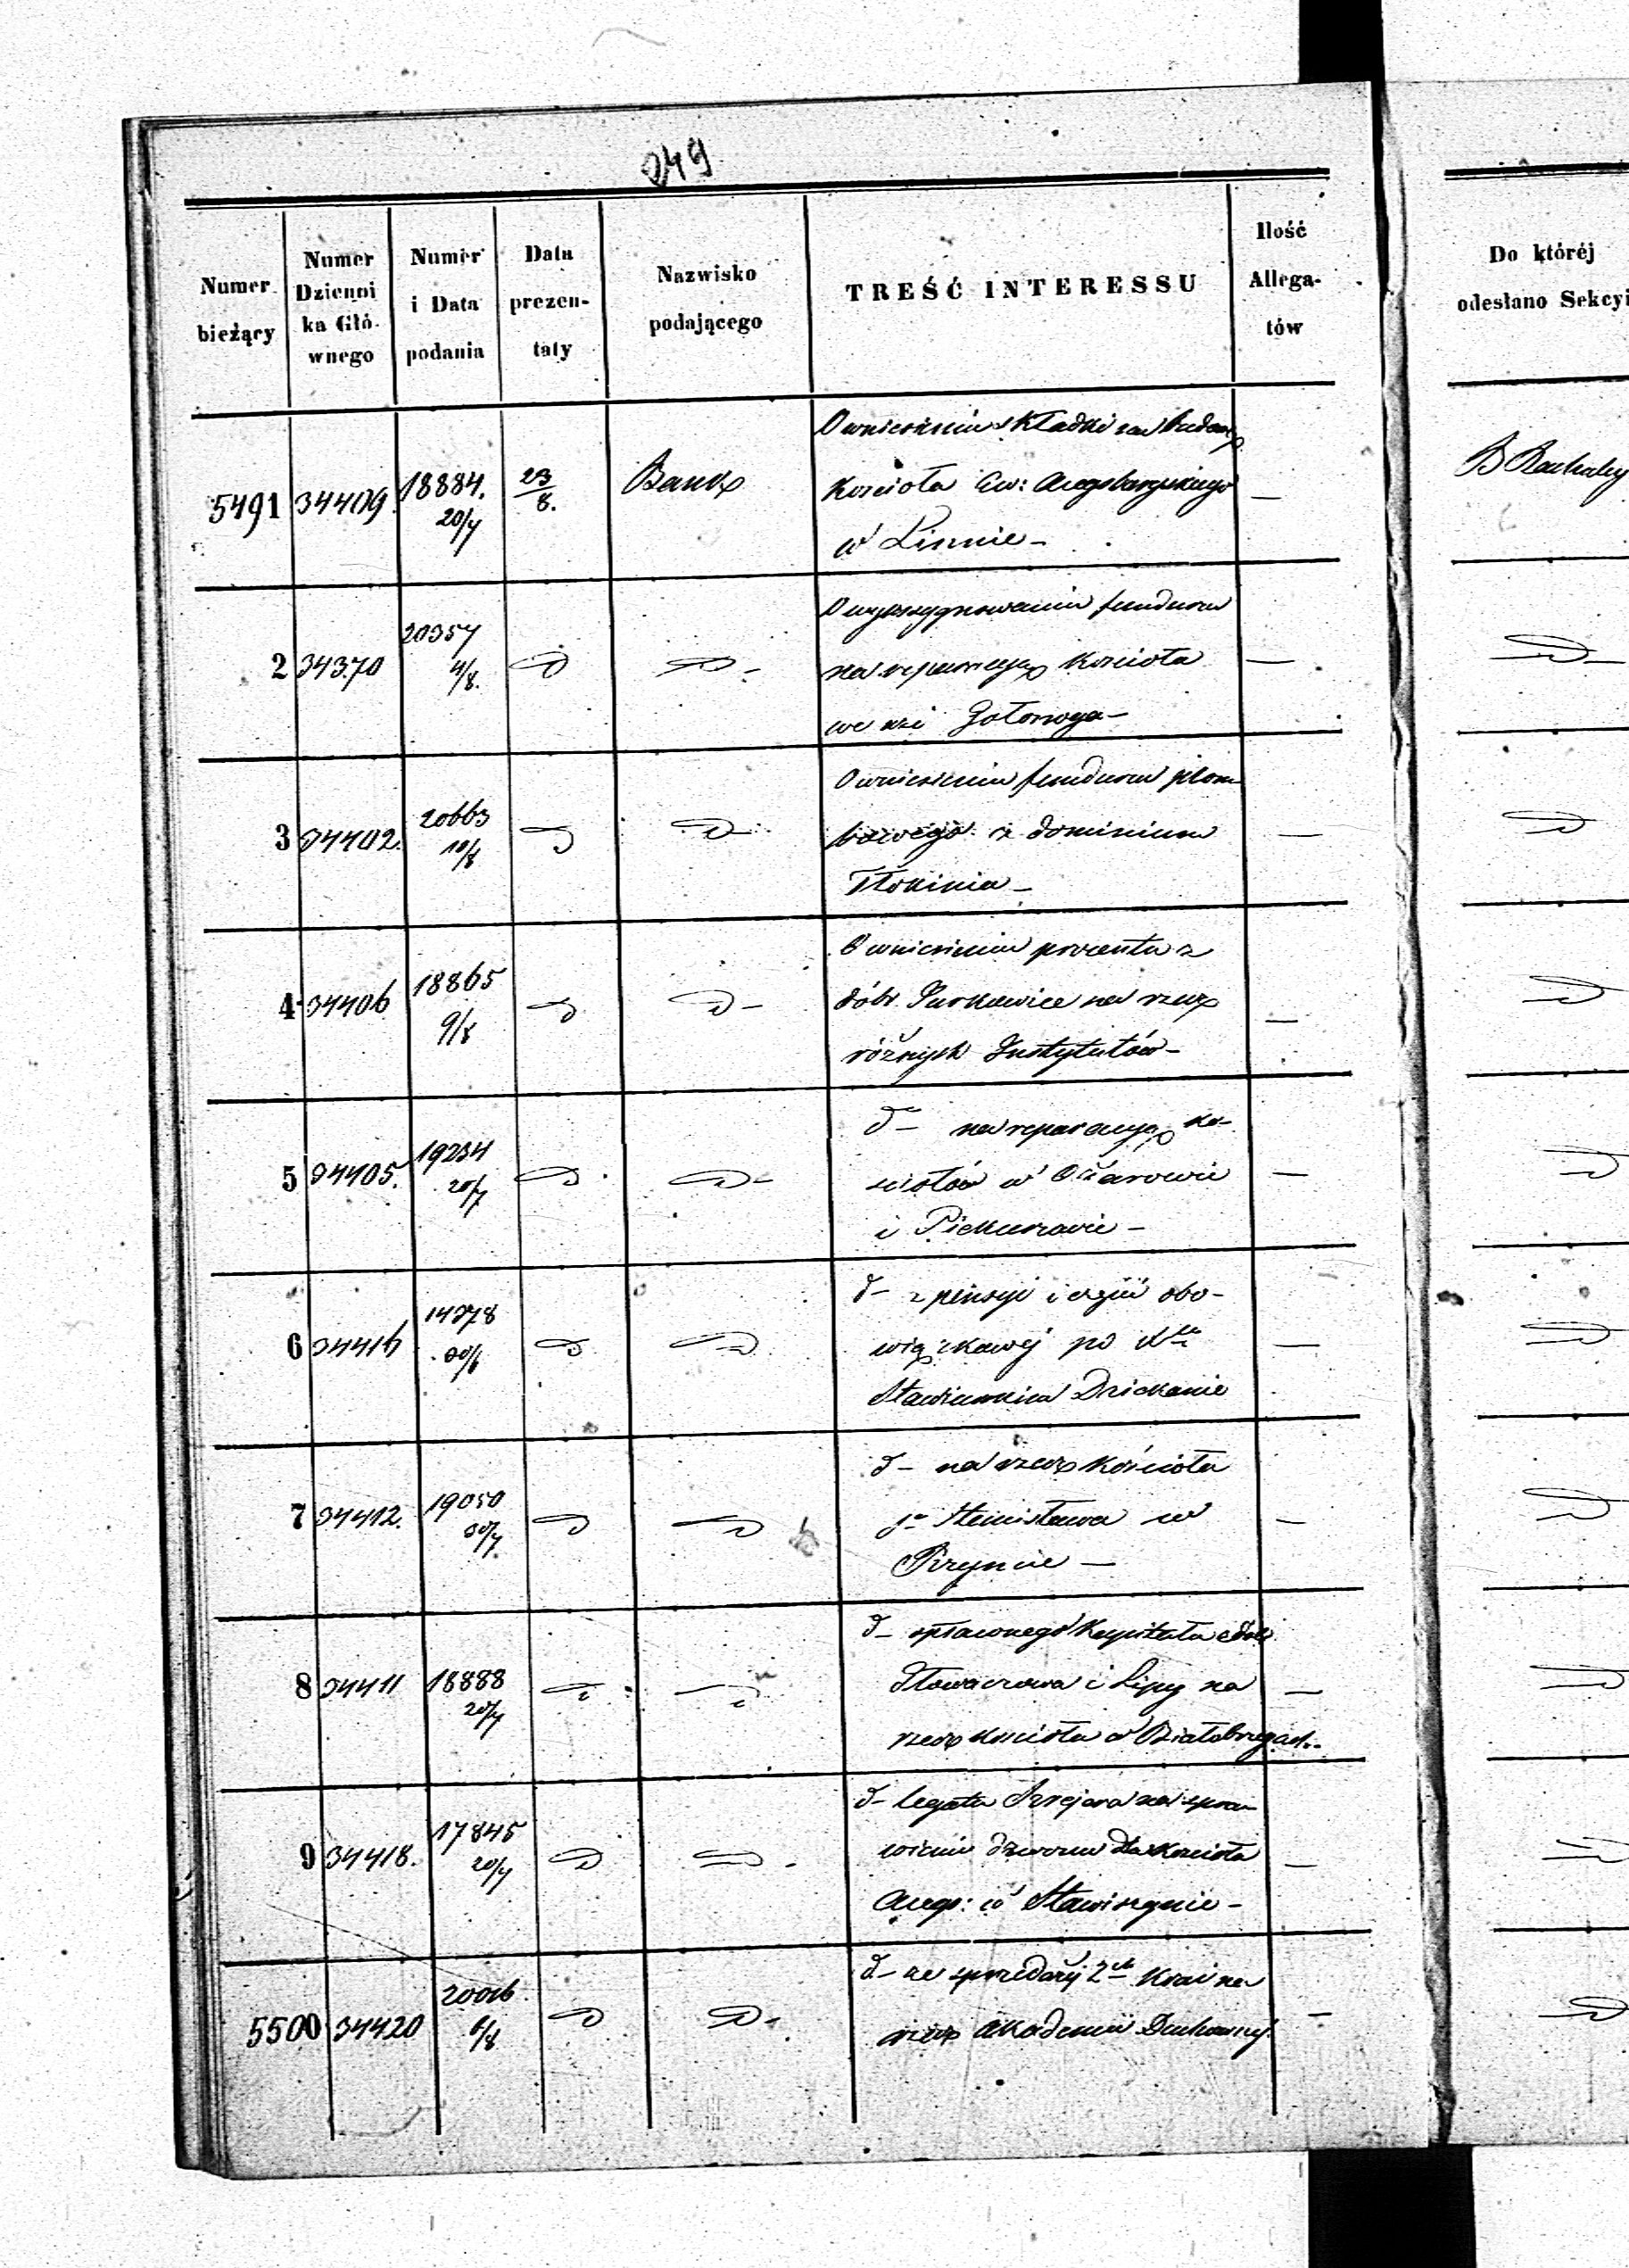 249
Numer bieżący
Numer Dzienni ka Głó- wnego
Numer i Data podania
Data prezen- taty
Nazwisko podającego
TREŚĆ INTERESSU
Ilość Allega- tów
Do któréj odesłano Sekcyi
5491 34409 18884. 20/7 23/8. Bank
O wniesieniu składki na budowę
kościoła Ew: Augsburgskiego
w Linnie –
2 34370 20357 4/8.
O wyassygnowaniu funduszu
na reparacyę kościoła
we wsi Gołonoga –
3 34402. 20663 10/8
O wniesieniu funduszu plom
bowego z dominium
Tłokinia –
4 34406 18865 9/8
O wniesieniu procentu z
dóbr Turkowice na rzecz
różnych Instytutów –
5 34405. 19234 20/7
d– na reparacyę ko-
sciołów w Ożarowie
i
6 34416 14378
d– z pensyi i
wiązkowej po
Dziekanie
7 34412. 19050 30/7.
d– na rzecz kościoła
Ś. Stanisława w
8 34411 18888 20/7
d– spłaconego kapitału z dóbr
Głowaczowa i Lipy na
rzecz kościoła w Białobrzegach.
9 34418. 17845 20/7
d– legatu na spra-
wienie dzwonu dla kościoła
Augs: w Stawiszynie –
5500 34420 20016 6/8
d– ze sprzedaży 2ch na
rzecz Akademii Duchownej.